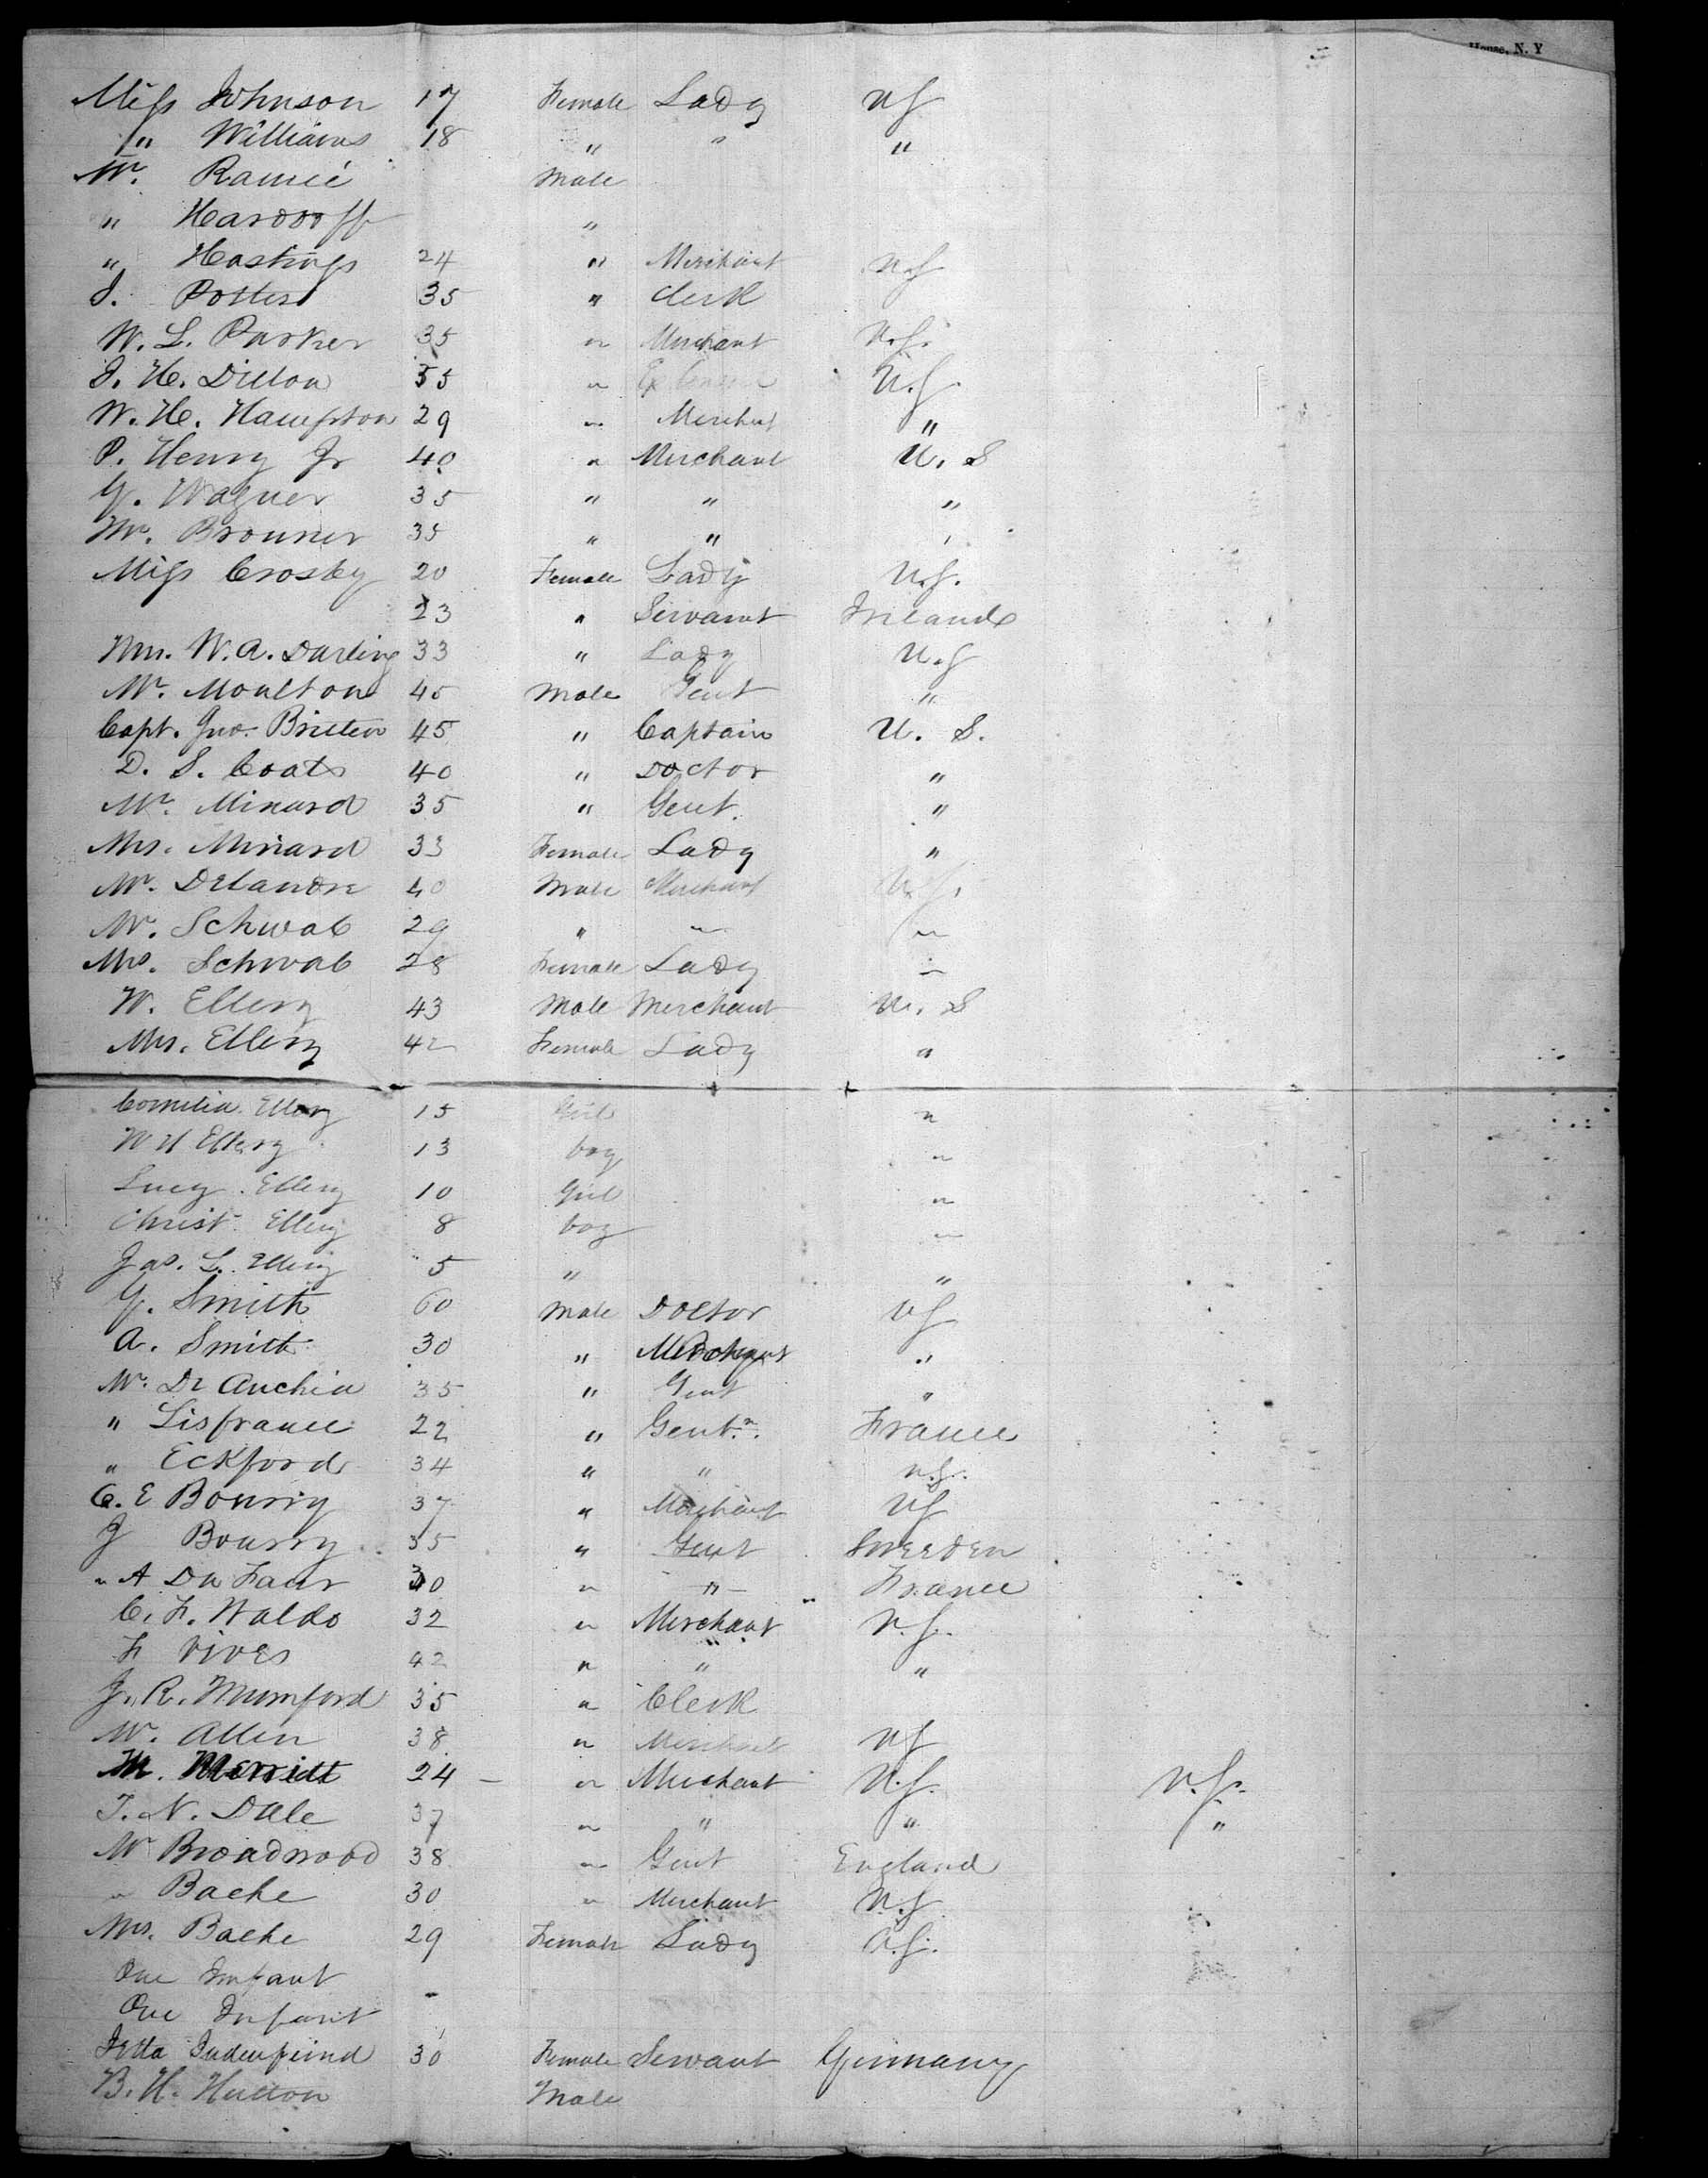 House, N. Y
Miss Johnson 17 Female Lady US
" Williams 18 " " "
Mr. Ramié Male
" Hardorff "
" Hastings 24 " Merchant U.S
J. Potter 35 " Clerk
W. L. Parker 35 " Merchant U.S.
J. H. Dillon 55 " U.S.
W. H. Hampton 29 " Merchant "
P. Henry Jr 40 " Merchant U. S
G. Wagner 35 " " "
Mr. Brouner 35 " " "
Miss Crosby 20 Female Lady U.S.
23 " Servant Ireland
Mrs. W. A. Darling 33 " Lady U.S
Mr. Moulton 45 Male Gent "
Capt. Jno. Britton 45 " Captain U. S.
D. S. Coats 40 " Doctor "
Mr. Minard 35 " Gent. "
Mrs. Minard 33 Female Lady "
Mr. Delandre 40 Male Merchant U.S.
Mr. Schwab 29 " " "
Mrs. Schwab 28 Female Lady "
W. Ellery 43 Male Merchant U. S
Mrs. Ellery 42 Female Lady "
Cornelia Ellery 15 Girl "
W H Ellery 13 boy "
Lucy Ellery 10 Girl "
Christ. Ellery 8 boy "
Jas. L. Ellery 5 " "
G. Smith 60 Male Doctor US
A. Smith 30 " Merchant "
Mr. De Auchia 35 " Gent "
" Lisfranc 22 " Gentn. France
" Eckford 34 " " U.S.
C. E Boursy 37 " Merchant US
J Boursy 35 " Gent Sweden
" A Du Faur 30 " " France
C. F. Waldo 32 " Merchant U.S.
F Vives 42 " " "
J. R. Mumford 35 " Clerk
W. Allen 38 " Merchant US
M. Merritt 24 " Merchant U.S. U.S.
T. N. Dale 37 " " " "
Mr Broadwood 38 " Gent England
" Bache 30 " Merchant U.S
Mrs. Bache 29 Female Lady U.S.
One Infant
One Infant
30 Female Servant Germany
B. H. Hutton Male